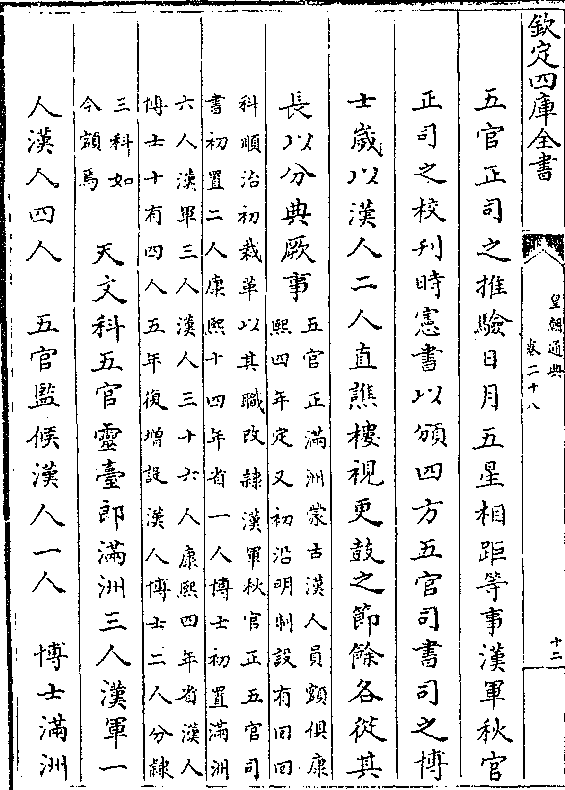 欽定四庫全書
皇朝通典
卷二十八
十二
五官正司之推驗日月五星相距等事漢軍秋官
正司之校刊時憲書以頒四方五官司書司之博
士歲以漢人二人直譙樓視更鼓之節餘各從其
長以分典厥事
五官正滿洲蒙古漢人員額俱康
熙四年定又初沿明制設有回回
科順治初裁革以其職改隸漢軍秋官正五官司
書初置二人康熙十四年省一人博士初置滿洲
六人漢軍三人漢人三十六人康熙四年省漢人
博士十有四人五年復增設漢人博士二人分隸
三科如
今額焉
天文科五官靈臺郎滿洲三人漢軍一
人漢人四人 五官監候漢人一人 博士滿洲